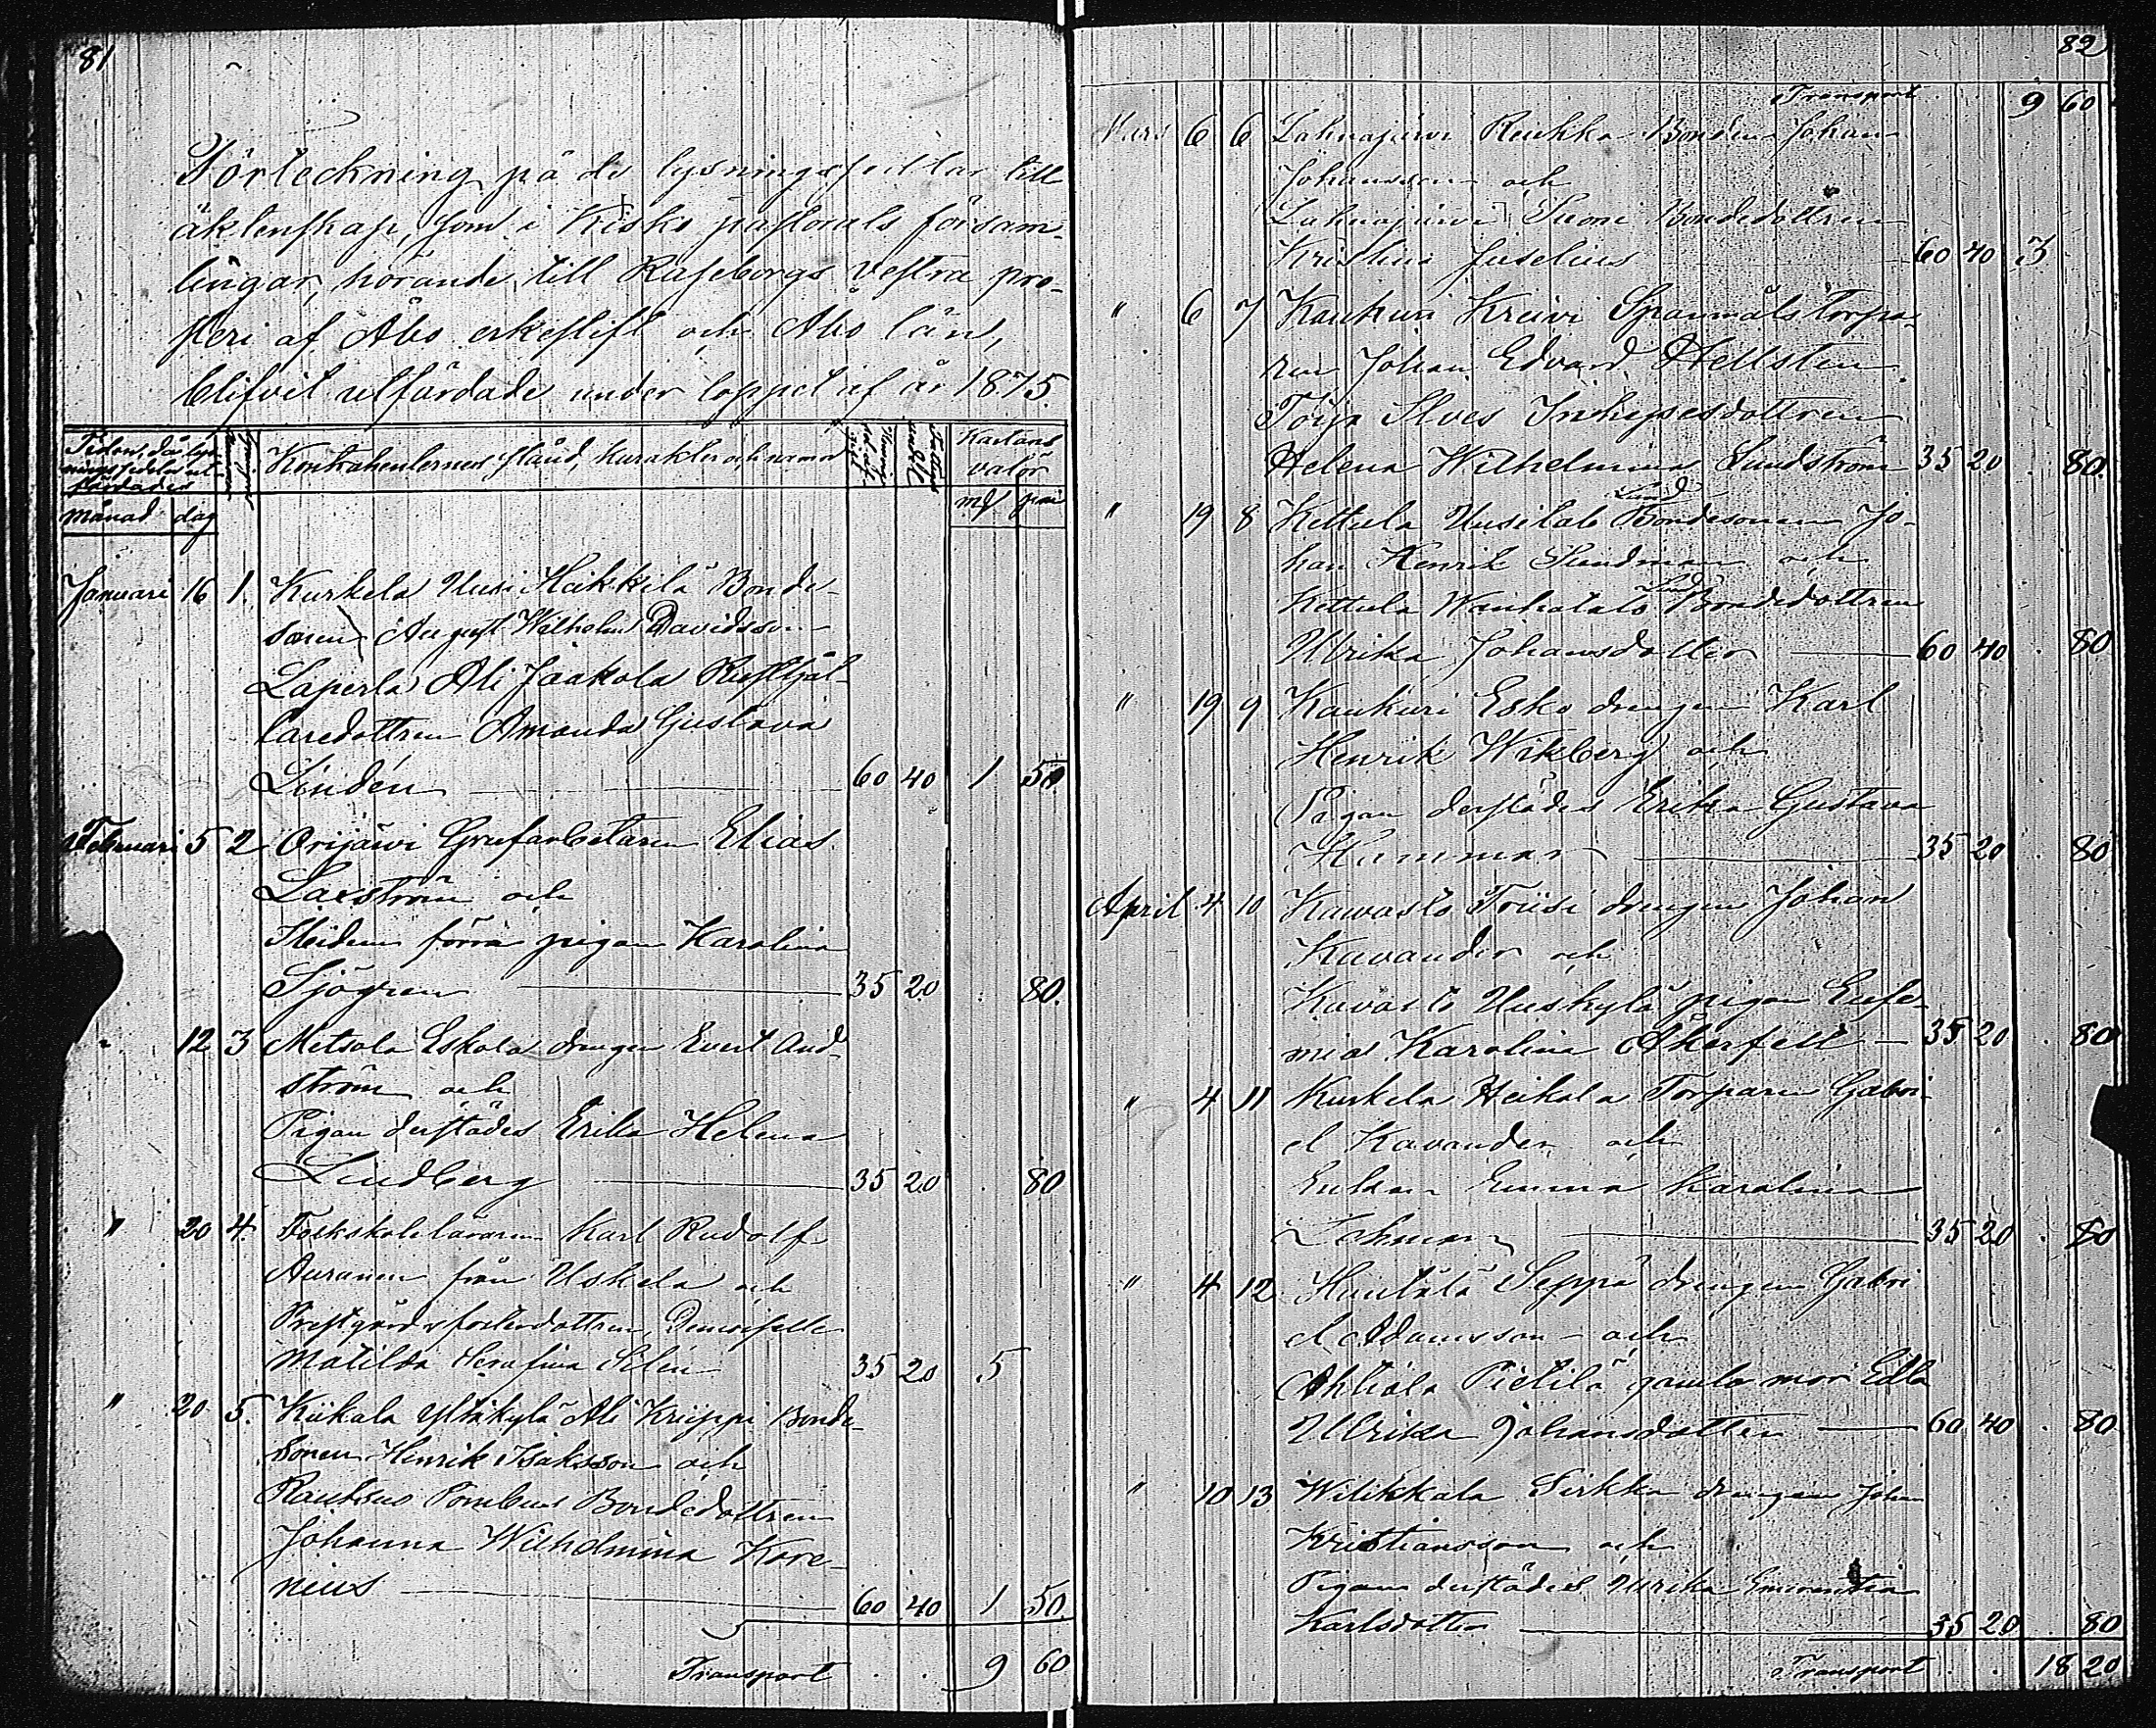 81
Förteckning på de lysningssedlar till
äktenskap, som i Kisko pastorats försam-
lingar, hörande till Raseborgs vestra pro-
steri af Åbo erkestift och Åbo län,
blifvit utfärdade under loppet af år 1875.
Tiden, då lys-
ningssedeln ut-
färdades
månad dag
Kontrahenternes stånd, karakter och namn
Kartans
valör
mf pni
Januari 16 1. Kurkela Uusi Heikkilä Bonde-
sonen August Wilhelm Davidsson
Laperla Ali Jaakola Rusthål-
laredottren Amanda Gustava
Lindén 60 40 1 50
Februari 5 2 Orijärvi Grufarbetaren Elias
Laxström och
förra pigan Karolina
Sjögren 35 20 . 80.
" 12 3 Metsola Eskola drengen Evert And-
ström och
Pigan derstädes Erika Helena
Lindberg 35 20 80
" 20 4. Folkskoleläraren Karl Rudolf
Auranen från Uskela och
Prestgårds fosterdottren, Demoiselle
Matilda Serafina Selin 35 20 5
" 20 5. Kiikala Yltäkylä Ali Krüppi Bonde-
sonen Henrik Isaksson och
Rauhsuo Pombus Bondedottren
Johanna Wilhelmina Kore-
nius 60 40 1 50
Transport . . 9 60
82
Transport 9 60
Mars 6 6 Lahnajärvi Reukka Bonden Johan
Johansson och
Lahnajärvi Suoni Bondedottren
Kristina Juselius 60 40 3
" 6 7 Kaukuri Kreivi Spanmålstorpa-
ren Johan Edvard Hellsten
Töija Sloes Inhysesdottren
Helena Wilhelmina Lundström 35 20 . 80.
" 19 8 Kettula Uusitalo Lund Bondesonen Jo-
han Henrik Sundman och
Kettula Wanhatalo Lund Bondedottren
Ulrika Johansdotter 60 40 . 80
" 19 9 Kaukuri Esko drengen Karl
Henrik Wikberg och
Pigan derstädes Erika Gustava
Hammar 35 20 . 80
April 4 10 Kavasto Friisi drengen Johan
Kavander och
Kavasto Uuskylä pigan Eufe-
mia Karolina Åkerfelt 35 20 . 80
" 4 11 Kurkela Heikola Torparen Gabri-
el Kavander och
Enkan Emma Karolina
Lehman 35 20 . 80
" 4 12 Seppä drengen Gabri-
el Adamsson och
Ahtiala Pietilä gamla mor Edla
Ulrika Johansdotter 60 40 . 80
" 10 13 Wilikkala Sirkka drengen Johan
Kristiansson och
Pigan derstädes Ulrika Emerentia
Karlsdotter 35 20 . 80
Transport . . 18 20